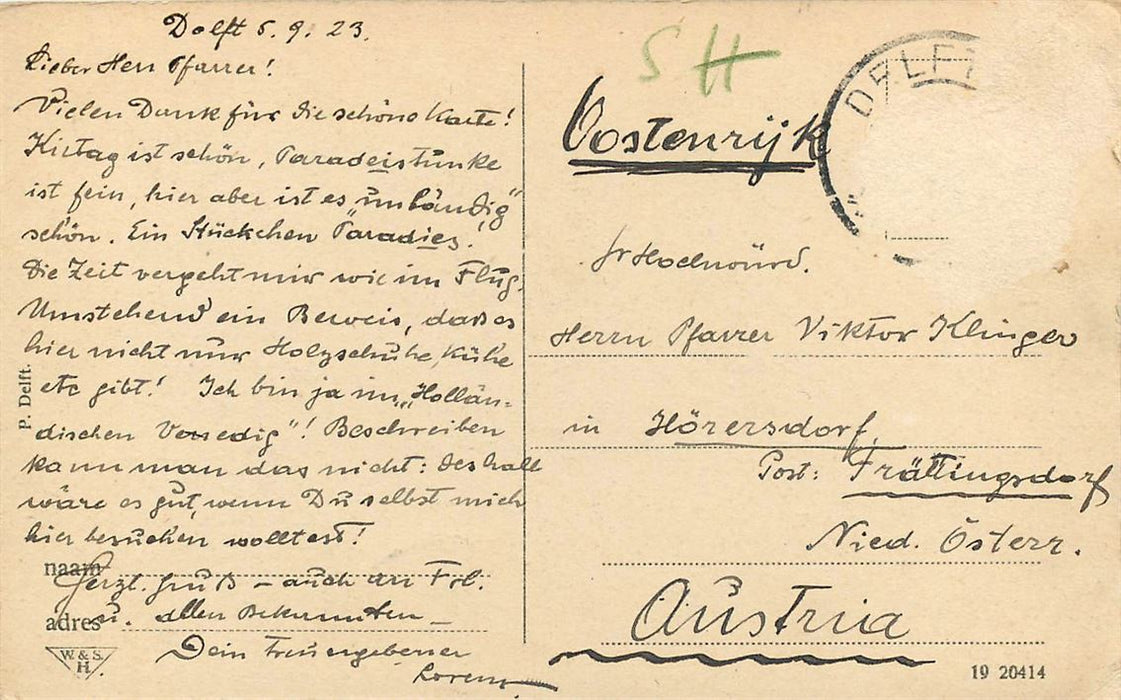 Delft 5.9.23.
Lieber Herr Pfarrer!
Vielen Dank für die schöne Karte!
Kirtag ist schön, Paradeistunke
ist fein, hier aber ist es "unbändig"
schön. Ein Stückchen "Paradies."
Die Zeit vergeht mir wie im Flug.
Umstehend ein Beweis, daß es
hier nicht nur Holzschuhe, Kühe
etc gibt! Ich bin ja im „Hollän-
dischen Venedig"! Beschreiben
kann man das nicht: deshalb
wäre es gut, wenn Du selbst mich
hier besuchen wolltest!
Herzl. Gruß – auch an Frl.
u. allen Bekannten –
Dein Treuergebener
Lorenz
P. Delft.
naam
adres
W. & S.
H.
S H
DELFT
Oostenrijk
Sr Hochwürd.
Herrn Pfarrer Viktor Klinger
in Hörersdorf,
Post: Frättingsdorf
Nied. Österr.
Austria
19 20414